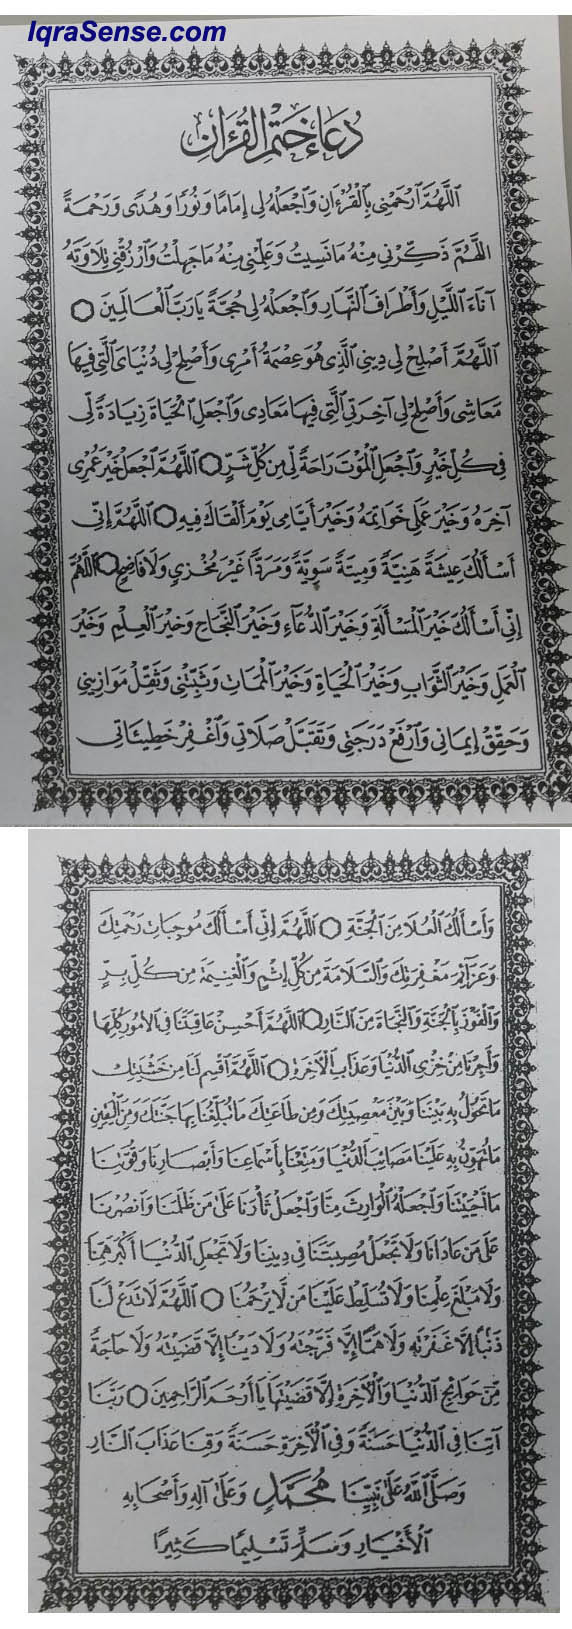 IqraSense.com
دُعَاءُ خَتْمِ الْقُرْءَانِ
اَللَّهُمَّ ارْحَمْنِي بِالْقُرْءَانِ وَاجْعَلْهُ لِي إِمَامًا وَنُورًا وَهُدًى وَرَحْمَةً
اللَّهُمَّ ذَكِّرْنِي مِنْهُ مَا نَسِيتُ وَعَلِّمْنِي مِنْهُ مَا جَهِلْتُ وَارْزُقْنِي تِلَاوَتَهُ
آنَاءَ اللَّيْلِ وَأَطْرَافَ النَّهَارِ وَاجْعَلْهُ لِي حُجَّةً يَا رَبَّ الْعَالَمِينَ
اللَّهُمَّ أَصْلِحْ لِي دِينِي الَّذِي هُوَ عِصْمَةُ أَمْرِي وَأَصْلِحْ لِي دُنْيَايَ الَّتِي فِيهَا
مَعَاشِي وَأَصْلِحْ لِي آخِرَتِي الَّتِي فِيهَا مَعَادِي وَاجْعَلِ الْحَيَاةَ زِيَادَةً لِي
فِي كُلِّ خَيْرٍ وَاجْعَلِ الْمَوْتَ رَاحَةً لِي مِنْ كُلِّ شَرٍّ اللَّهُمَّ اجْعَلْ خَيْرَ عُمْرِي
آخِرَهُ وَخَيْرَ عَمَلِي خَوَاتِمَهُ وَخَيْرَ أَيَّامِي يَوْمَ أَلْقَاكَ فِيهِ اللَّهُمَّ إِنِّي
أَسْأَلُكَ عِيشَةً هَنِيَّةً وَمِيتَةً سَوِيَّةً وَمَرَدًّا غَيْرَ مُخْزِي وَلَا فَاضِحٍ اللَّهُمَّ
إِنِّي أَسْأَلُكَ خَيْرَ الْمَسْأَلَةِ وَخَيْرَ الدُّعَاءِ وَخَيْرَ النَّجَاحِ وَخَيْرَ الْعِلْمِ وَخَيْرَ
الْعَمَلِ وَخَيْرَ الثَّوَابِ وَخَيْرَ الْحَيَاةِ وَخَيْرَ الْمَمَاتِ وَثَبِّتْنِي وَثَقِّلْ مَوَازِينِي
وَحَقِّقْ إِيمَانِي وَارْفَعْ دَرَجَتِي وَتَقَبَّلْ صَلَاتِي وَاغْفِرْ خَطِيئَاتِي
وَأَسْأَلُكَ الْعُلَا مِنَ الْجَنَّةِ اللَّهُمَّ إِنِّي أَسْأَلُكَ مُوجِبَاتِ رَحْمَتِكَ
وَعَزَائِمَ مَغْفِرَتِكَ وَالسَّلَامَةَ مِنْ كُلِّ إِثْمٍ وَالْغَنِيمَةَ مِنْ كُلِّ بِرٍّ
وَالْفَوْزَ بِالْجَنَّةِ وَالنَّجَاةَ مِنَ النَّارِ اللَّهُمَّ أَحْسِنْ عَاقِبَتَنَا فِي الْأُمُورِ كُلِّهَا
وَأَجِرْنَا مِنْ خِزْيِ الدُّنْيَا وَعَذَابِ الْآخِرَةِ اللَّهُمَّ اقْسِمْ لَنَا مِنْ خَشْيَتِكَ
مَا تَحُولُ بِهِ بَيْنَنَا وَبَيْنَ مَعْصِيَتِكَ وَمِنْ طَاعَتِكَ مَا تُبَلِّغُنَا بِهَا جَنَّتَكَ وَمِنَ الْيَقِينِ
مَا تُهَوِّنُ بِهِ عَلَيْنَا مَصَائِبَ الدُّنْيَا وَمَتِّعْنَا بِأَسْمَاعِنَا وَأَبْصَارِنَا وَقُوَّتِنَا
مَا أَحْيَيْتَنَا وَاجْعَلْهُ الْوَارِثَ مِنَّا وَاجْعَلْ ثَأْرَنَا عَلَى مَنْ ظَلَمَنَا وَانْصُرْنَا
عَلَى مَنْ عَادَانَا وَلَا تَجْعَلْ مُصِيبَتَنَا فِي دِينِنَا وَلَا تَجْعَلِ الدُّنْيَا أَكْبَرَ هَمِّنَا
وَلَا مَبْلَغَ عِلْمِنَا وَلَا تُسَلِّطْ عَلَيْنَا مَنْ لَا يَرْحَمُنَا اللَّهُمَّ لَا تَدَعْ لَنَا
ذَنْبًا إِلَّا غَفَرْتَهُ وَلَا هَمًّا إِلَّا فَرَّجْتَهُ وَلَا دَيْنًا إِلَّا قَضَيْتَهُ وَلَا حَاجَةً
مِنْ حَوَائِجِ الدُّنْيَا وَالْآخِرَةِ إِلَّا قَضَيْتَهَا يَا أَرْحَمَ الرَّاحِمِينَ رَبَّنَا
آتِنَا فِي الدُّنْيَا حَسَنَةً وَفِي الْآخِرَةِ حَسَنَةً وَقِنَا عَذَابَ النَّارِ
وَصَلَّى اللَّهُ عَلَى نَبِيِّنَا مُحَمَّدٍ وَعَلَى آلِهِ وَأَصْحَابِهِ
الْأَخْيَارِ وَسَلَّمَ تَسْلِيمًا كَثِيرًا